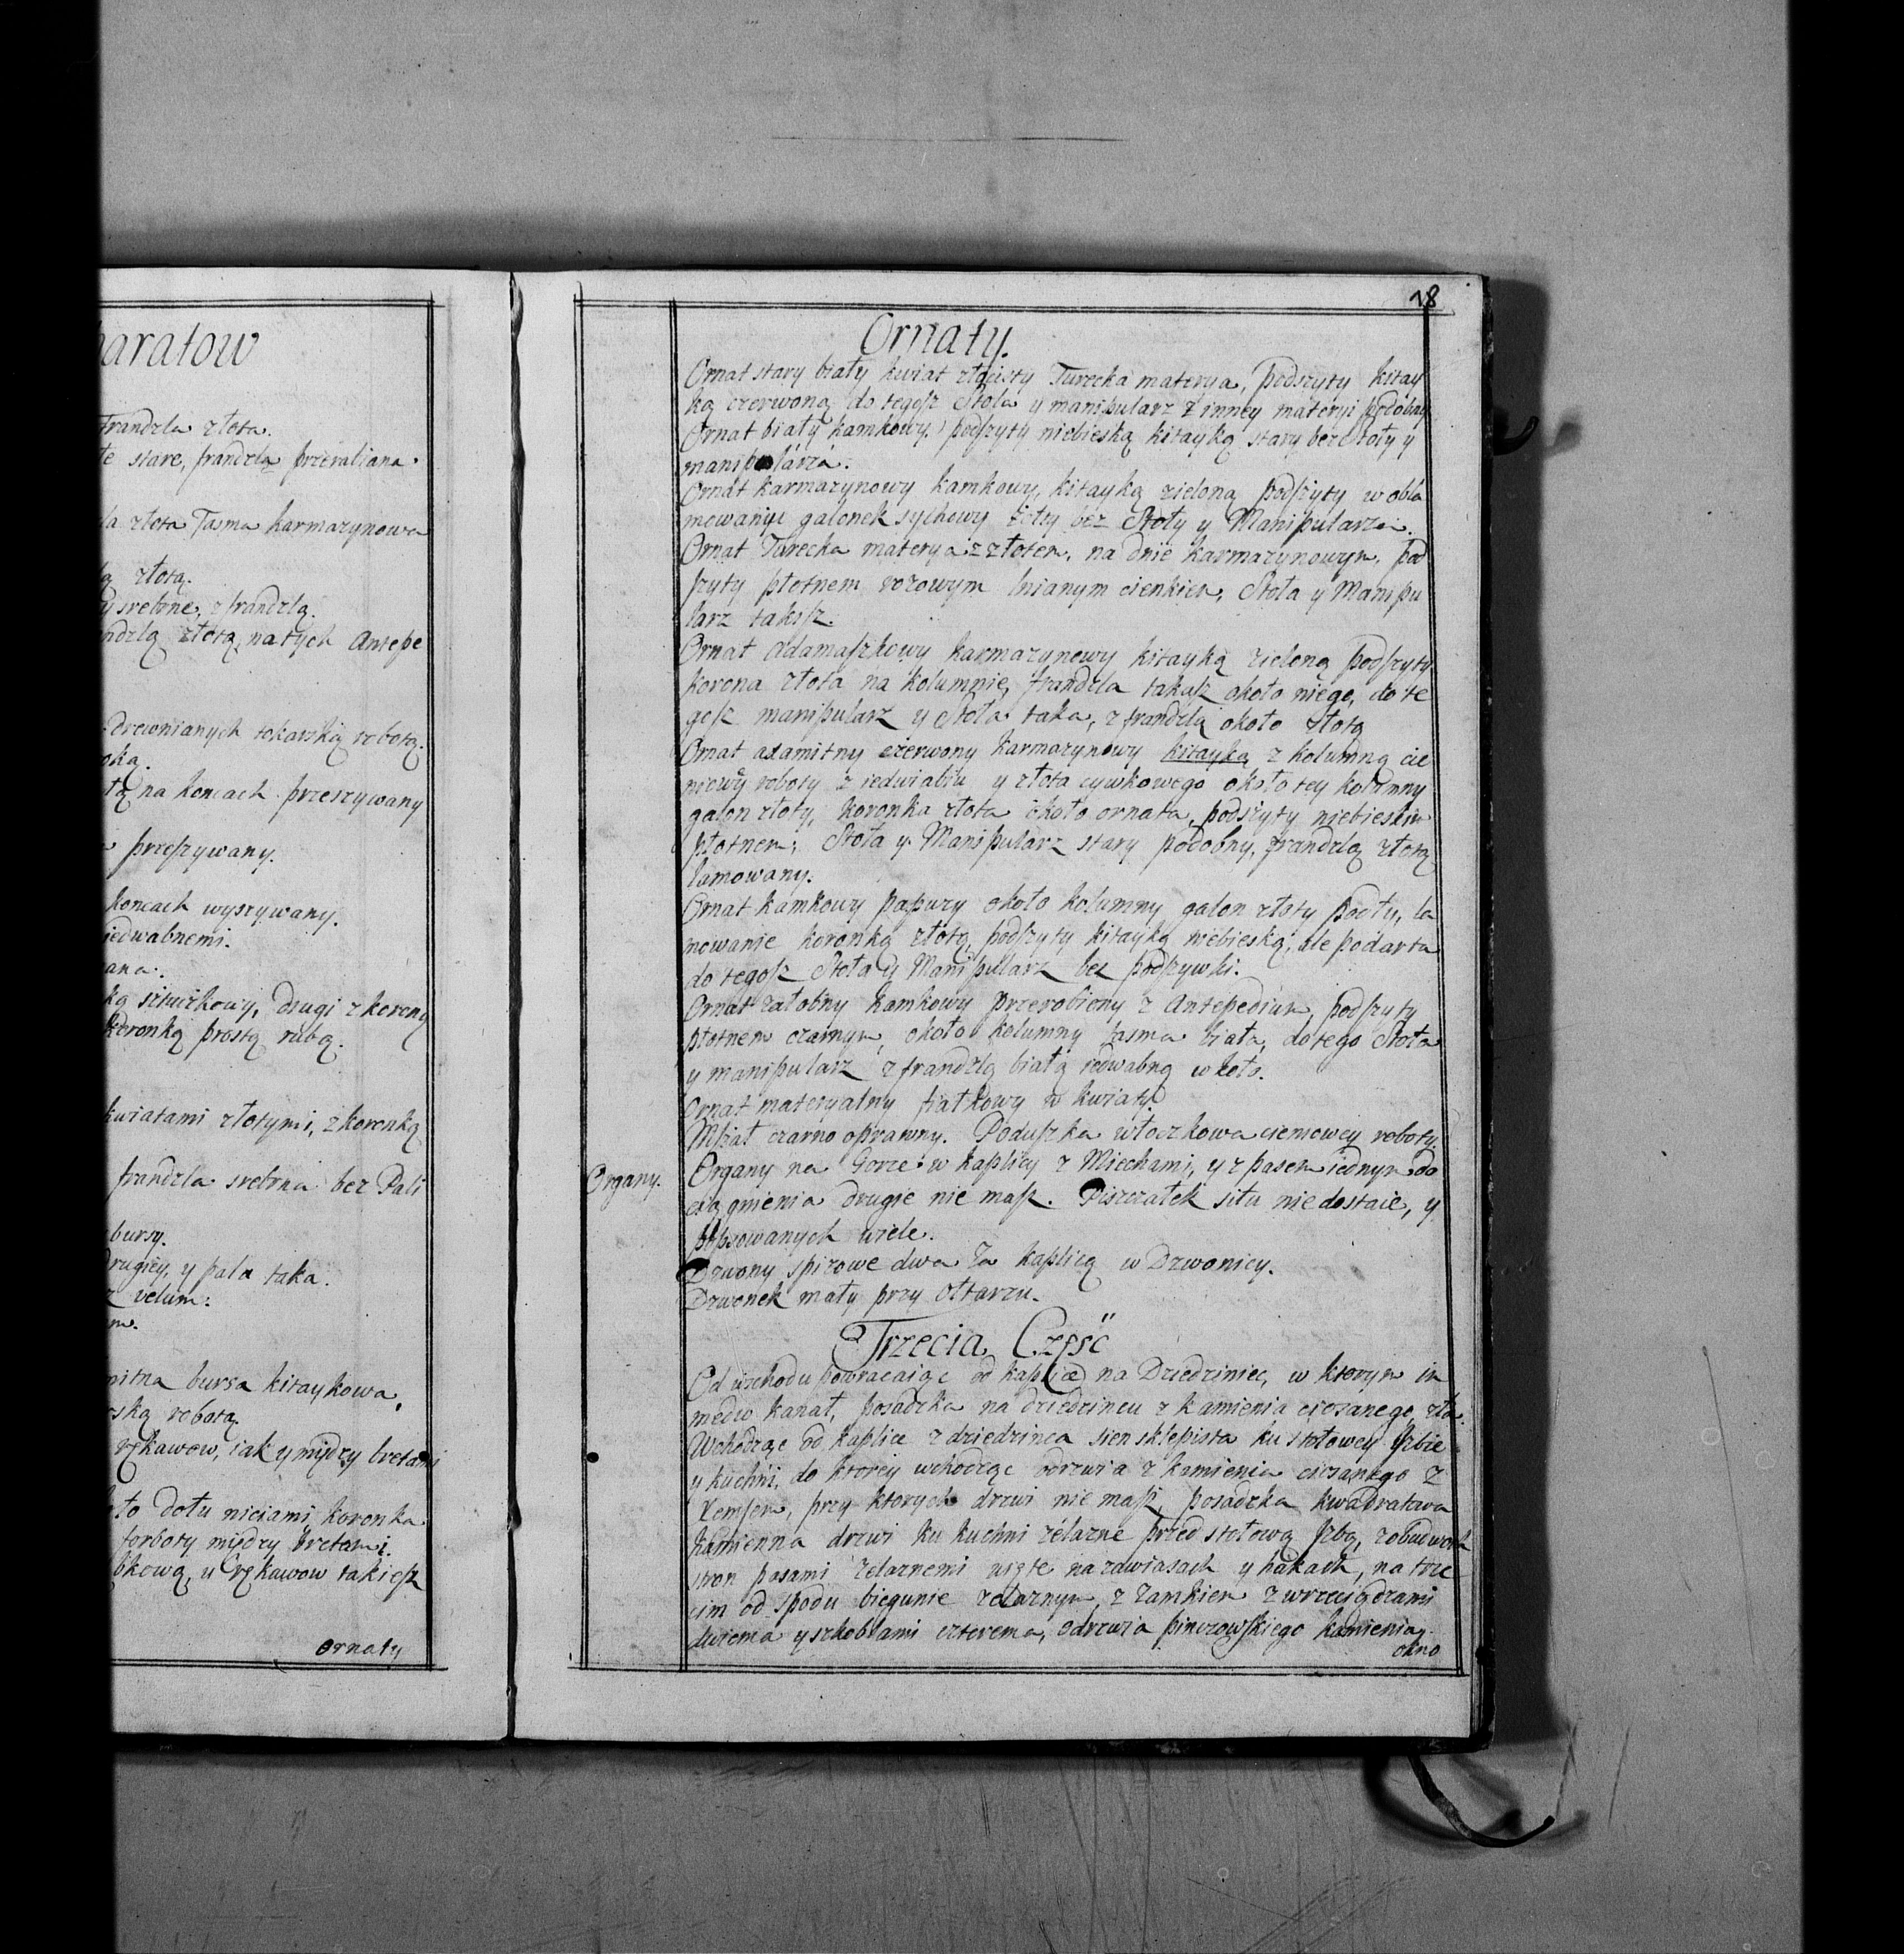 paratow
frandzla złota.
te stare, frandzlą przeraliana.
la złota Tasma karmazynowa
lą złotą.
y srebrne, z frandzlą.
ndzlą złotą, na tych Antepe
drewnianych tokarską robotą.
oką.
tą na koncach przeszywany
przeszywany.
koncach wyszywany.
iedwabnemi.
ana.
ką sztuczkowy, drugi z koroną
koronką prostą rubą.
kwiatami złotymi, z koronką
frandzla srebrna bez Pali
bursy.
drugiey, y pala taka.
z velum.
m.
mitna bursa kitaykowa,
ską robotą.
rękawow, iak y między bretami
to dołu niciami koronka
forboty między bretami.
bkową, u rękawow takiesz
ornaty
18
Ornaty.
Ornat stary biały kwiat złocisty Turecka materya, podszyty kitay
ką czerwoną do tegosz Stola y manipularz z inney materyi podobny
Ornat biały kamkowy podszyty niebieską kitayką stary bez stoły y
manipularza.
Ornat karmazynowy kamkowy, kitayką zieloną podszyty w obla
mowaniu galonek sychowy żołty bez Stoły y Manipularza.
Ornat Turecka materya z złotem, na dnie karmazynowym, pod
szyty płotnem rozowym lnianym cienkiem, Stoła y Manipu
larz taksz.
Ornat Adamaszkowy karmazynowy kitayką zieloną podszyty
korona złota na kolumnie, frandzla takasz około niego, do te
gosz manipularz y Stoła taka, z frandzlą około złotą
Ornat axamitny czerwony karmazynowy kitayką z kolumną cie
niowy roboty z iedwiabiu y złota cywkowego około tey kolumny
galon złoty, koronka złota około ornata, podszyty niebieskim
płotnem, Stoła y Manipularz stary podobny, frandzlą złotą
lamowany.
Ornat kamkowy papuzy około kolumny galon złoty podły, la
mowanie koronką złotą, podszyty kitayką niebieską, ale podarta
do tegosz Stoła y Manipularz bez podszywki.
Ornat załobny kamkowy przerobiony z Antepedium, podszyty
płotnem czarnym, około kolumny tasma biała, do tego Stoła
y manipularz z frandzlą białą iedwabną w koło.
Ornat materyalny fiałkowy w kwiaty.
Mszał czarno oprawny. Poduszka włoczkowa cieniowey roboty.
Organy.
Organy na Gorze w kaplicy z Miechami, y z pasem iednym do
ciągnienia drugie nie masz. Piszczałek situ nie dostaie, y
popsowanych wiele.
Dzwony spizowe dwa Za kaplicą w Dzwonicy.
Dzwonek mały przy ołtarzu.
Trzecia Część
Od wschodu powracaiąc od kaplice na Dziedziniec, w ktorym in
medio kanał, posadzka na dziedzincu z kamienia ciosanego, zła.
Wchodząc od kaplice z dziedzinca sien sklepista ku stołowey Izbie
y kuchni, do ktorey wchodząc odrzwia z kamienia ciosanego z
kemsem, przy ktorych drzwi nie masz, posadzka kwadratowa
kamienna drzwi ku kuchni żelazne przed stołową Izbą, z obudwoch
stron pasami żelaznemi nizte na zawiasach y hakach, na trze
cim od spodu biegunie żelaznym, z zamkiem z wrzeciądzami
dwiema y szkoblami czterema, odrzwia pinczowskiego kamienia,
okno